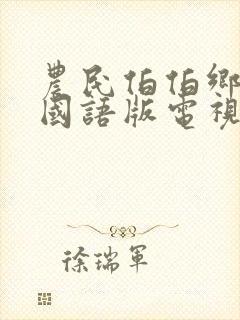 農民伯伯鄉
國語版電視
徐瑞軍